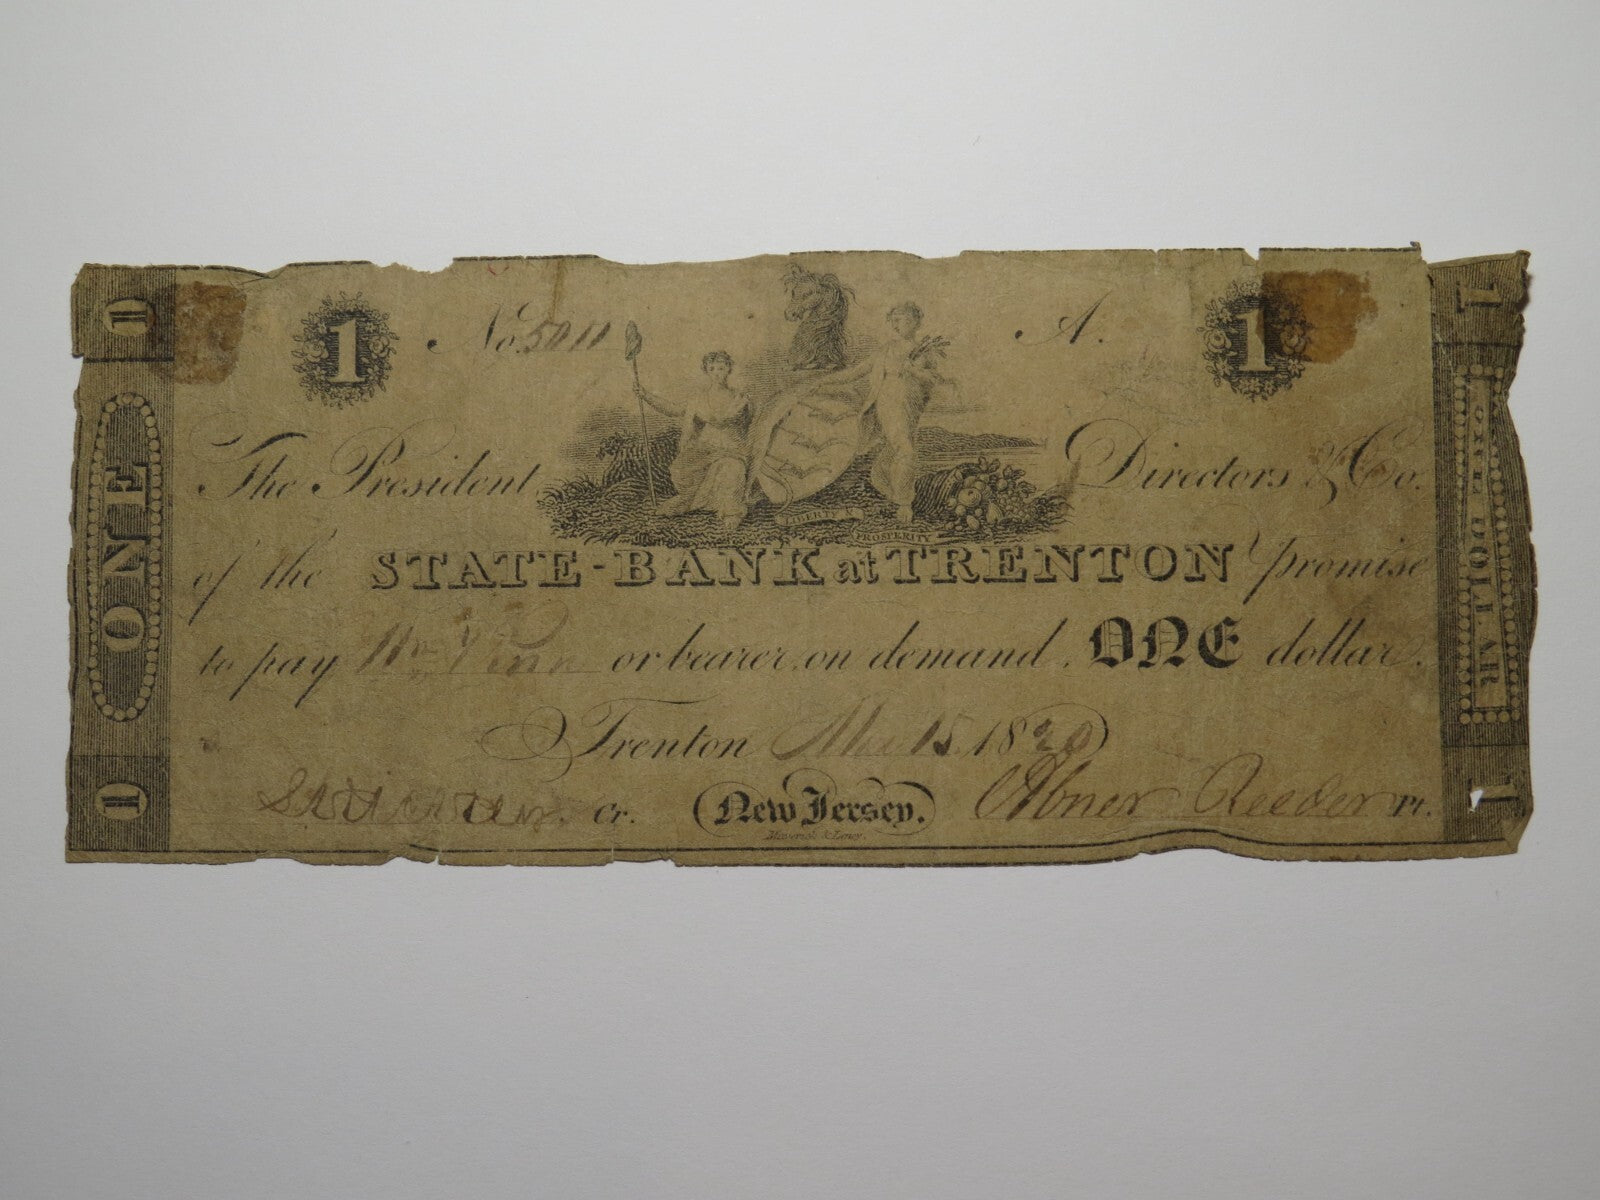 1
ONE
1
1 No. 5011 A. 1
The President Directors & Co.
LIBERTY & PROSPERITY
of the STATE-BANK at TRENTON promise
to pay or bearer, on demand, ONE dollar.
Trenton 15. 1820
Cr. New Jersey. Abner Reeder Pt.
Maverick & Leney.
1
ONE DOLLAR
1